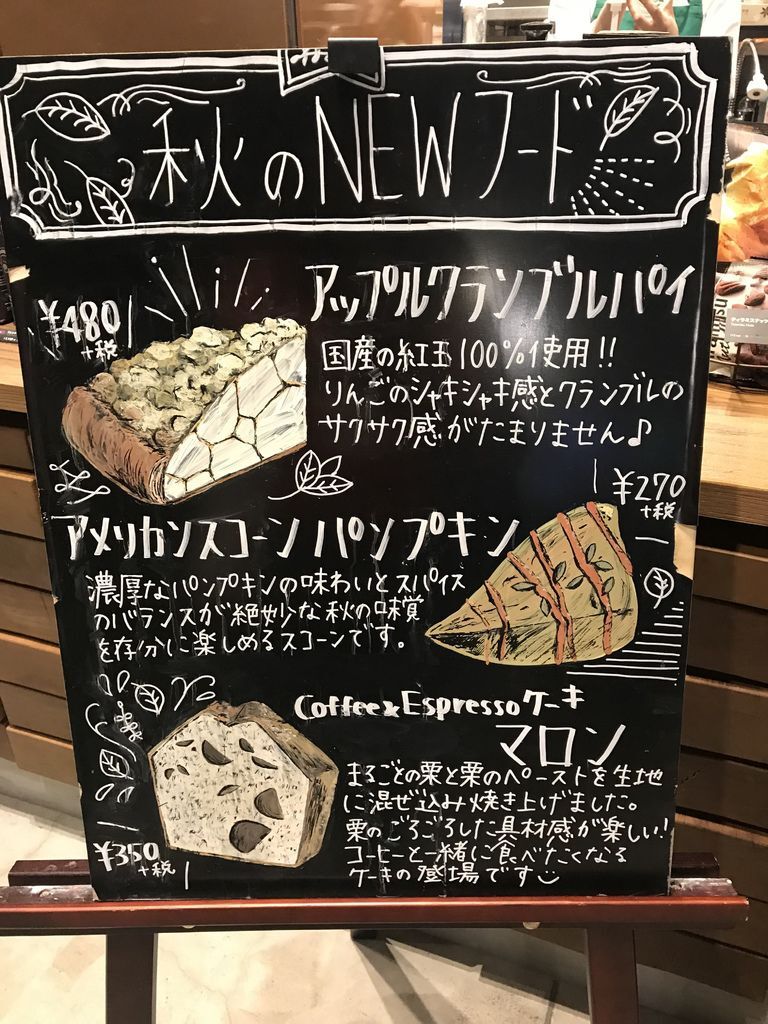 秋のNEWフード
アップルクランブルパイ
¥480
+税
国産の紅玉100%使用!!
りんごのシャキシャキ感とクランブルの
サクサク感がたまりません♪
¥270
+税
アメリカンスコーン パンプキン
濃厚なパンプキンの味わいとスパイス
のバランスが絶妙な秋の味覚
を存分に楽しめるスコーンです。
Coffee&Espressoケーキ
マロン
まるごとの栗と栗のペーストを生地
に混ぜ込み焼き上げました。
栗のごろごろした具材感が楽しい!
コーヒーと一緒に食べたくなる
ケーキの登場です
¥350
+税